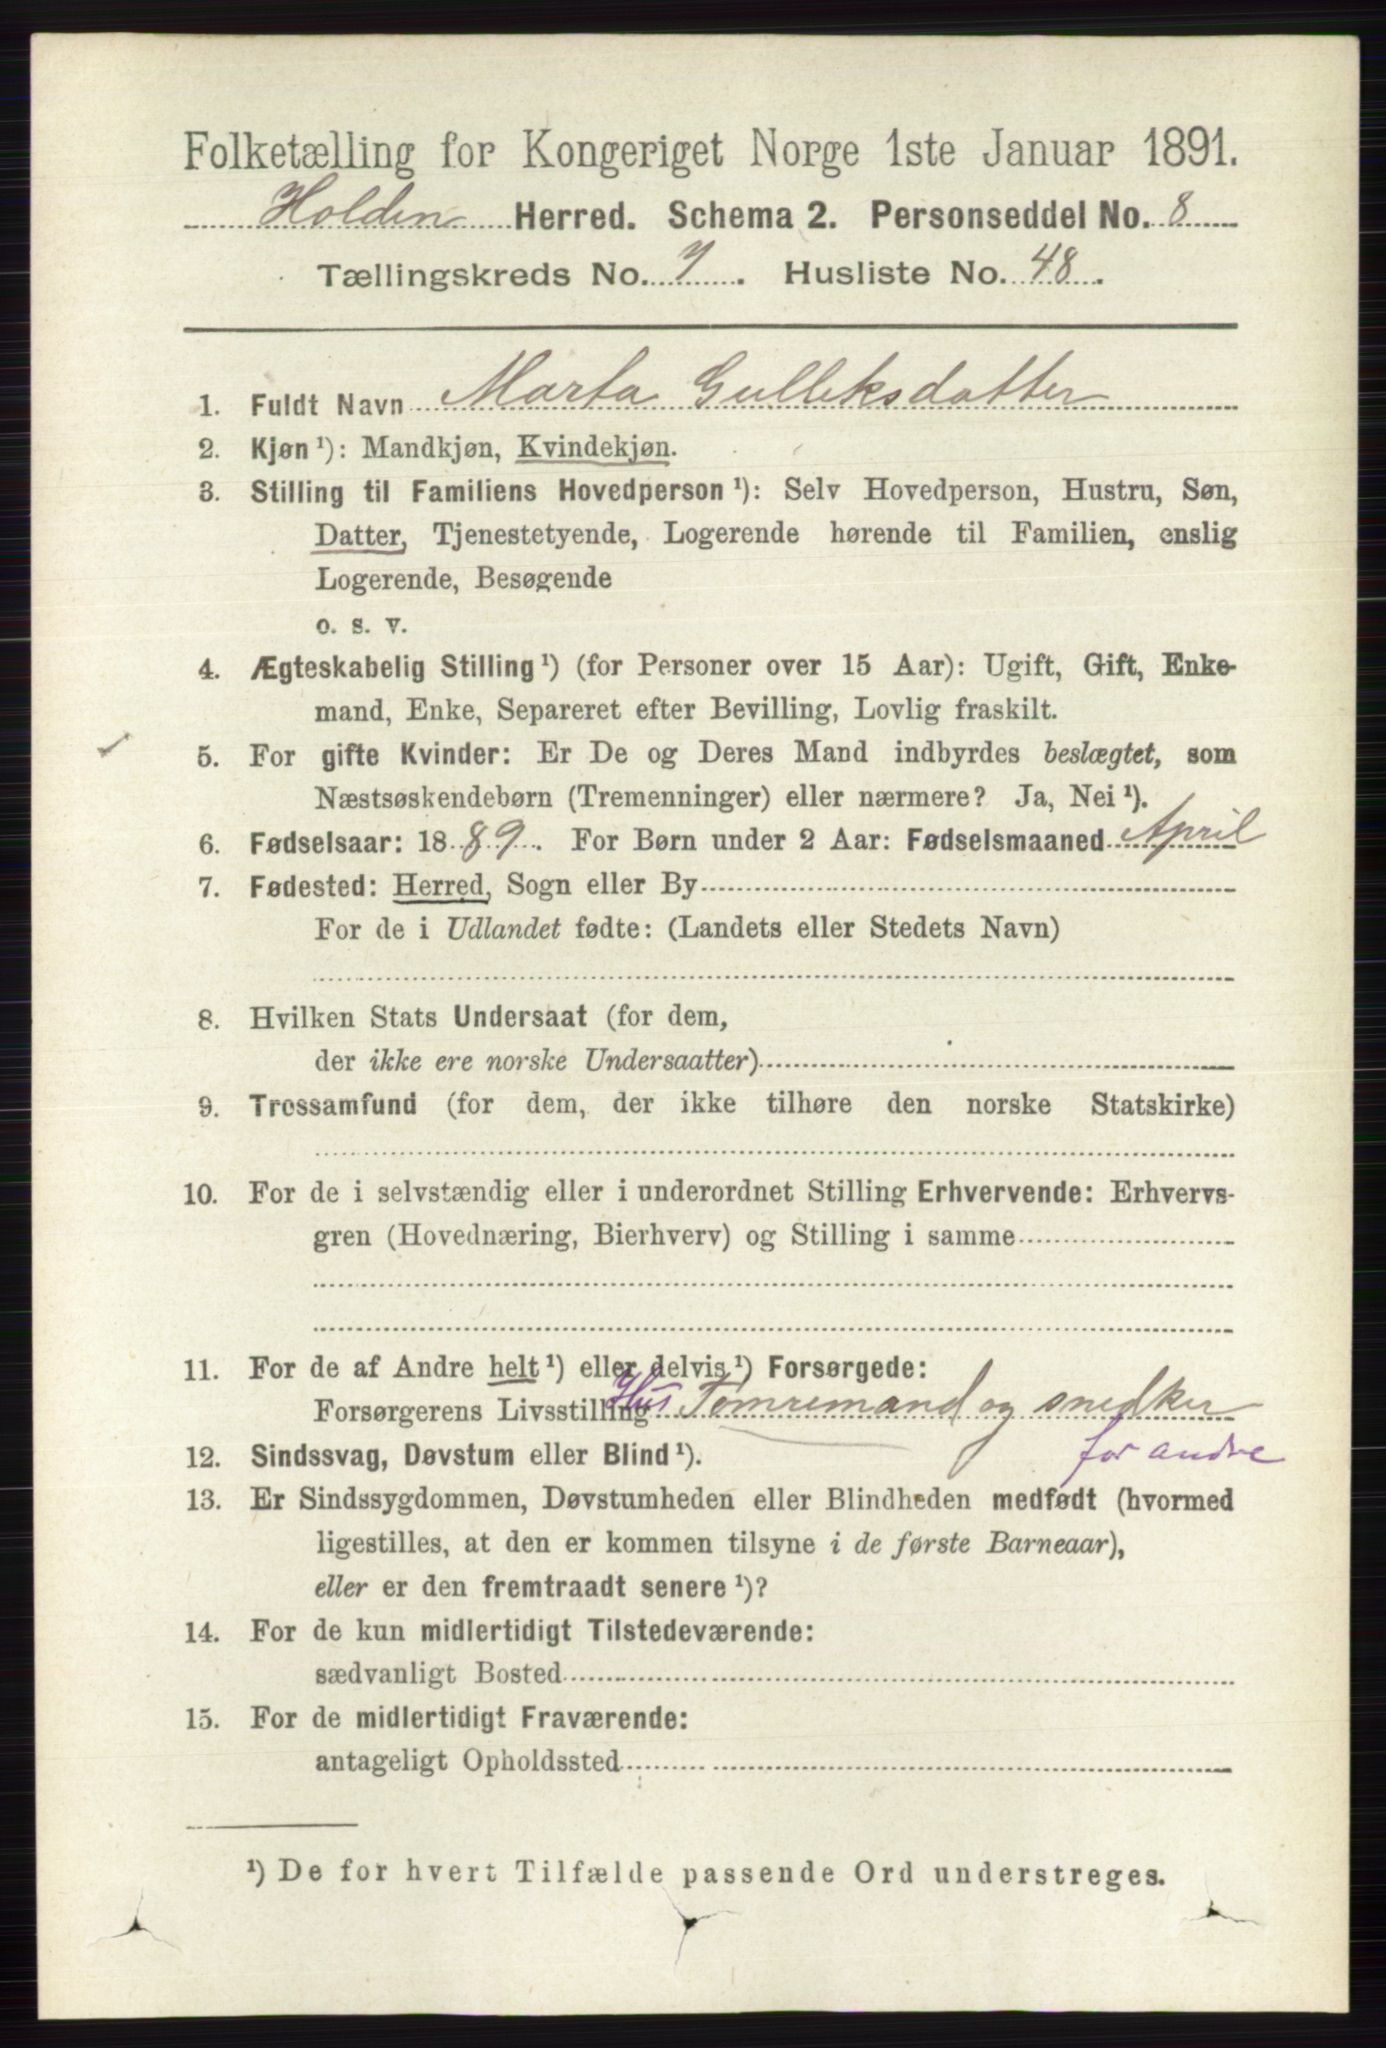 Folketælling for Kongeriget Norge 1ste Januar 1891.
Holden Herred. Schema 2. Personseddel No. 8
Tællingskreds No. 7. Husliste No. 48.
1. Fuldt Navn Marta Gulleksdatter
2. Kjøn ¹): Mandkjøn, Kvindekjøn.
3. Stilling til Familiens Hovedperson ¹): Selv Hovedperson, Hustru, Søn,
Datter, Tjenestetyende, Logerende hørende til Familien, enslig
Logerende, Besøgende
o. s. v.
4. Ægteskabelig Stilling ¹) (for Personer over 15 Aar): Ugift, Gift, Enke-
mand, Enke, Separeret efter Bevilling, Lovlig fraskilt.
5. For gifte Kvinder: Er De og Deres Mand indbyrdes beslægtet, som
Næstsøskendebørn (Tremenninger) eller nærmere? Ja, Nei ¹).
6. Fødselsaar: 1889. For Børn under 2 Aar: Fødselsmaaned April
7. Fødested: Herred, Sogn eller By
For de i Udlandet fødte: (Landets eller Stedets Navn)
8. Hvilken Stats Undersaat (for dem,
der ikke ere norske Undersaatter)
9. Trossamfund (for dem, der ikke tilhøre den norske Statskirke)
10. For de i selvstændig eller i underordnet Stilling Erhvervende: Erhvervs-
gren (Hovednæring, Bierhverv) og Stilling i samme
11. For de af Andre helt ¹) eller delvis ¹) Forsørgede:
Forsørgerens Livsstilling Hus Tømremand og snedker
for andre
12. Sindssvag, Døvstum eller Blind ¹).
13. Er Sindssygdommen, Døvstumheden eller Blindheden medfødt (hvormed
ligestilles, at den er kommen tilsyne i de første Barneaar),
eller er den fremtraadt senere ¹)?
14. For de kun midlertidigt Tilstedeværende:
sædvanligt Bosted
15. For de midlertidigt Fraværende:
antageligt Opholdssted
¹) De for hvert Tilfælde passende Ord understreges.